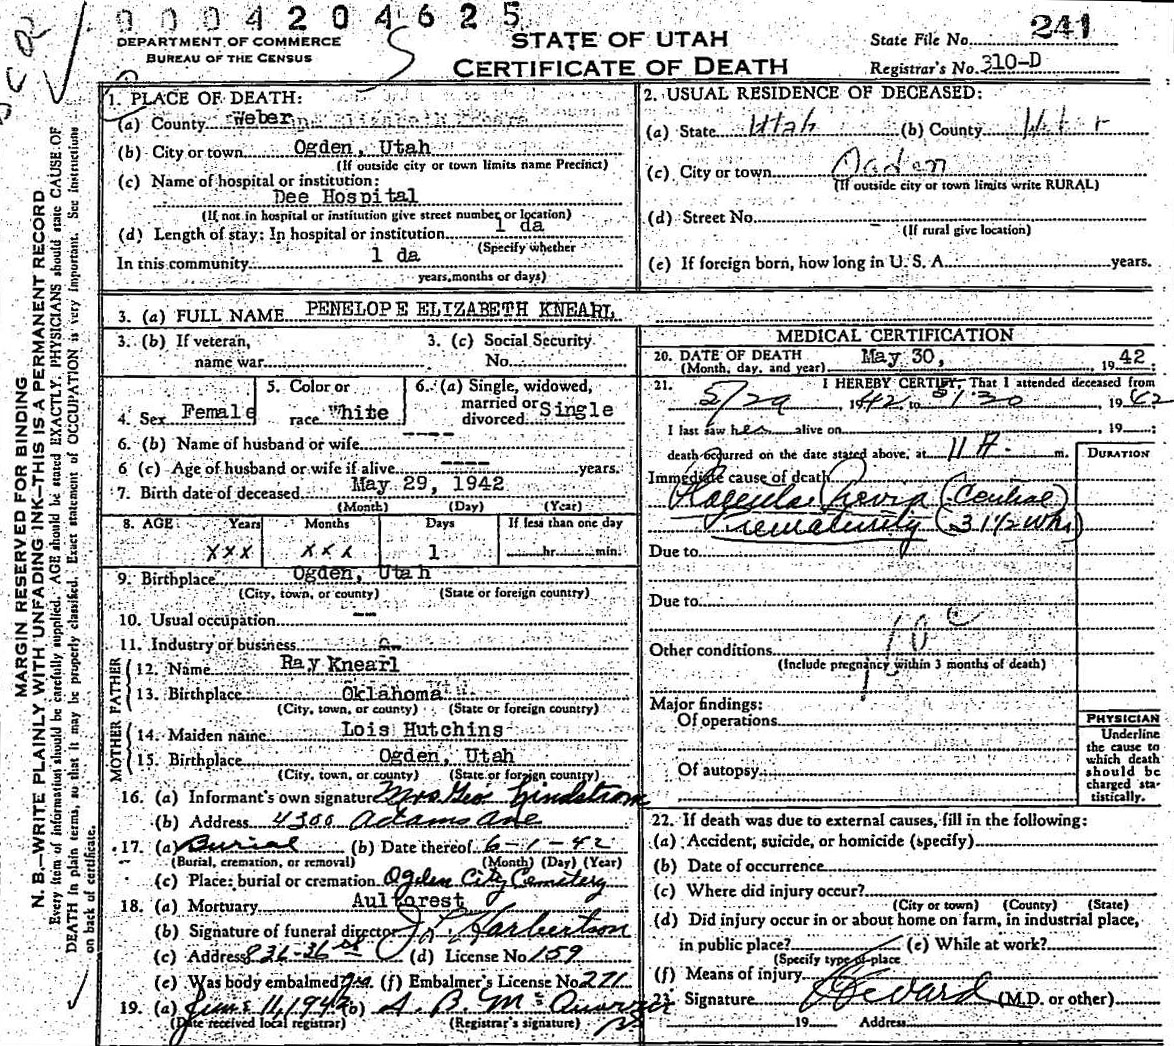 0004204625
DEPARTMENT OF COMMERCE
BUREAU OF THE CENSUS
STATE OF UTAH
CERTIFICATE OF DEATH
State File No. 241
Registrar's No. 310-D
MARGIN RESERVED FOR BINDING
N. B.—WRITE PLAINLY WITH UNFADING INK—THIS IS A PERMANENT RECORD
Every item of information should be carefully supplied. AGE should be stated EXACTLY. PHYSICIANS should state CAUSE OF
DEATH in plain terms, so that it may be properly classified. Exact statement of OCCUPATION is very important. See instructions
on back of certificate.
1. PLACE OF DEATH:
(a) County Weber
(b) City or town Ogden, Utah
(If outside city or town limits name Precinct)
(c) Name of hospital or institution:
Dee Hospital
(If not in hospital or institution give street number or location)
(d) Length of stay: In hospital or institution 1 da
(Specify whether
In this community 1 da
years, months or days)
2. USUAL RESIDENCE OF DECEASED:
(a) State Utah (b) County
(c) City or town Ogden
(If outside city or town limits write RURAL)
(d) Street No.
(If rural give location)
(e) If foreign born, how long in U. S. A. years.
3. (a) FULL NAME PENELOPE ELIZABETH KNEARL
3. (b) If veteran, 3. (c) Social Security
name war No.
4. Sex Female 5. Color or race White 6. (a) Single, widowed, married or divorced Single
6. (b) Name of husband or wife ----
6 (c) Age of husband or wife if alive ---- years.
7. Birth date of deceased May 29, 1942
(Month) (Day) (Year)
8. AGE Years Months Days If less than one day
xxx xxx 1 hr. min.
9. Birthplace Ogden, Utah
(City, town, or county) (State or foreign country)
10. Usual occupation --
11. Industry or business
FATHER
12. Name Ray Knearl
13. Birthplace Oklahoma
(City, town, or county) (State or foreign country)
MOTHER
14. Maiden name Lois Hutchins
15. Birthplace Ogden, Utah
(City, town, or county) (State or foreign country)
16. (a) Informant's own signature Mrs Geo Lindstrom
(b) Address 4300 Adams Ave
17. (a) Burial (b) Date thereof 6-1-42
(Burial, cremation, or removal) (Month) (Day) (Year)
(c) Place: burial or cremation Ogden City Cemetery
18. (a) Mortuary Aultorest
(b) Signature of funeral director J L Harbertson
(c) Address 836-36 st (d) License No. 159
(e) Was body embalmed? (f) Embalmer's License No. 271
19. (a) June 11, 1942 (b) A. B. Mc
(Date received local registrar) (Registrar's signature)
MEDICAL CERTIFICATION
20. DATE OF DEATH May 30, 1942
(Month, day, and year)
21. I HEREBY CERTIFY, That I attended deceased from
5/29, 1942 to 5/30 1942
I last saw her alive on , 19 ;
death occurred on the date stated above, at 11 A. m.
DURATION
Immediate cause of death
Placenta Previa (Central)
Prematurity (31 1/2 Wks)
Due to
Due to
Other conditions
(Include pregnancy within 3 months of death)
Major findings:
Of operations
Of autopsy
PHYSICIAN
Underline
the cause to
which death
should be
charged sta-
tistically.
22. If death was due to external causes, fill in the following:
(a) Accident, suicide, or homicide (specify)
(b) Date of occurrence
(c) Where did injury occur?
(City or town) (County) (State)
(d) Did injury occur in or about home on farm, in industrial place,
in public place? (e) While at work?
(Specify type of place
(f) Means of injury
23. Signature (M.D. or other)
19 Address